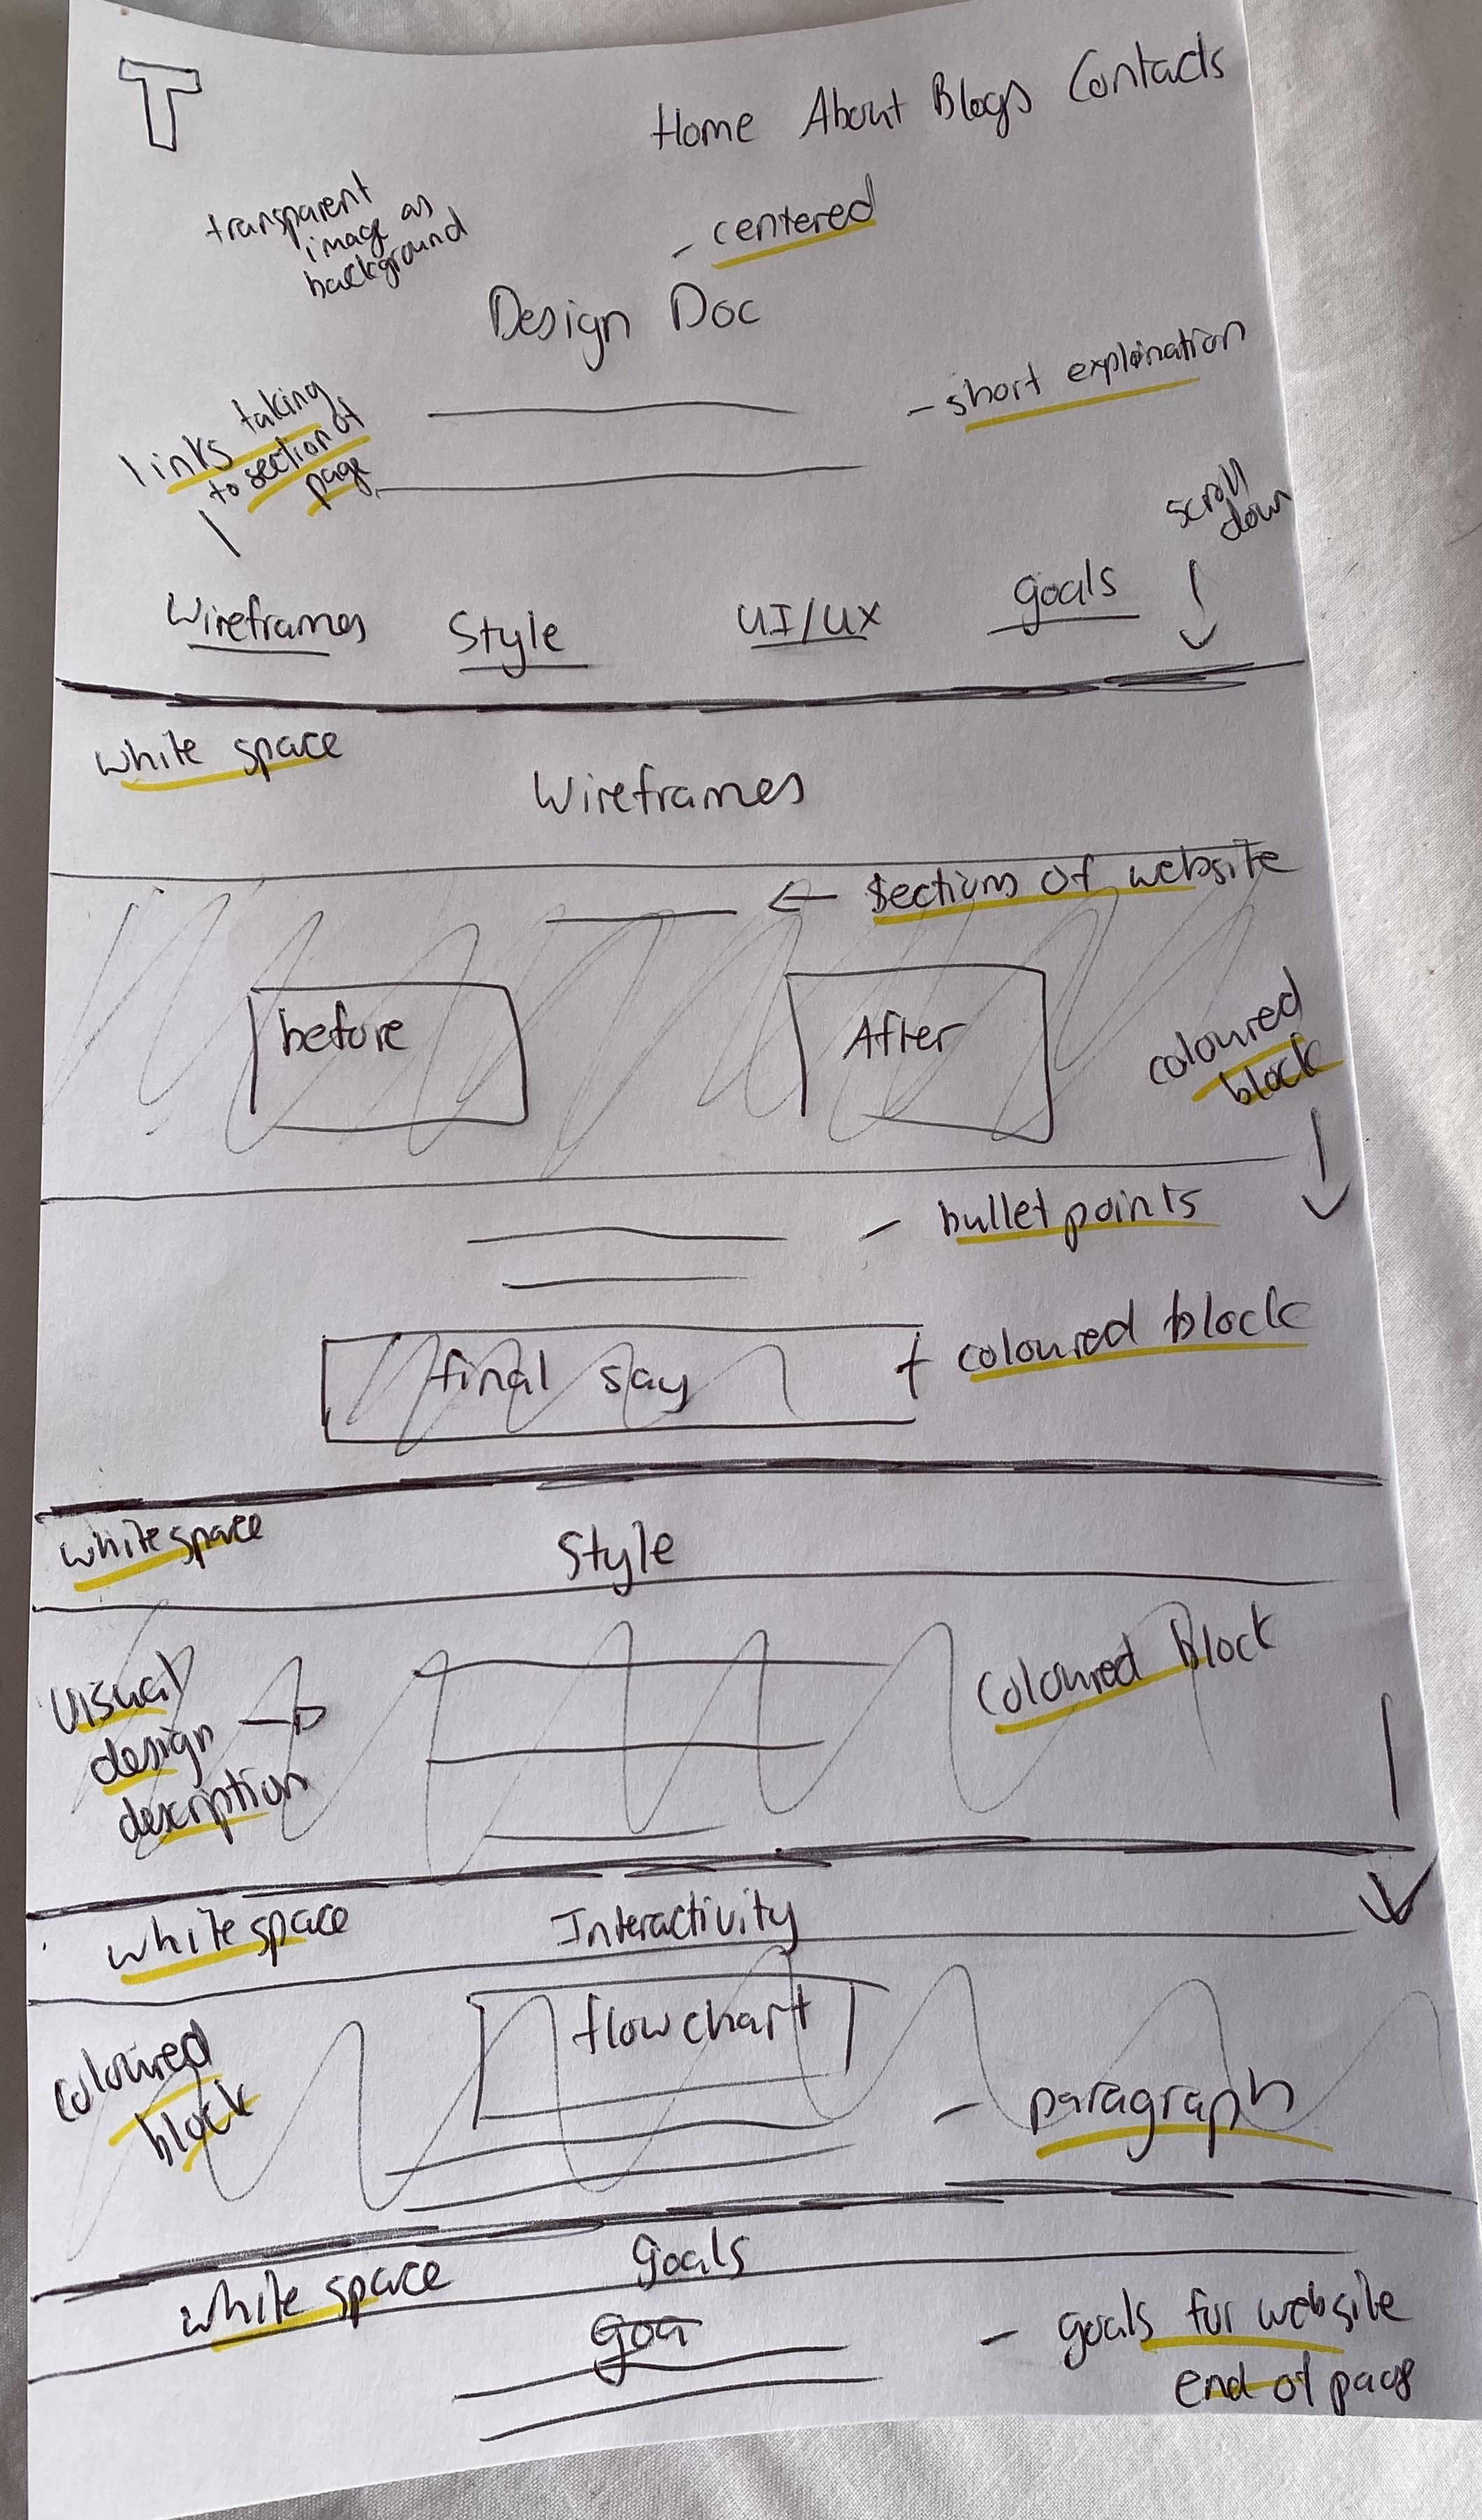 T
Home About Blogs Contacts
transparent
image as
background
- centered
Design Doc
- short explination
links taking
to section of
page
scroll
down
Wireframes Style UI/UX goals
white space
Wireframes
← Sections of website
before
After
coloured
block
- bullet points
final say
coloured block
white space
Style
visual
design
description
coloured block
white space
Interactivity
flowchart
coloured
block
- paragraph
goals
white space
goa
- goals for website
end of page